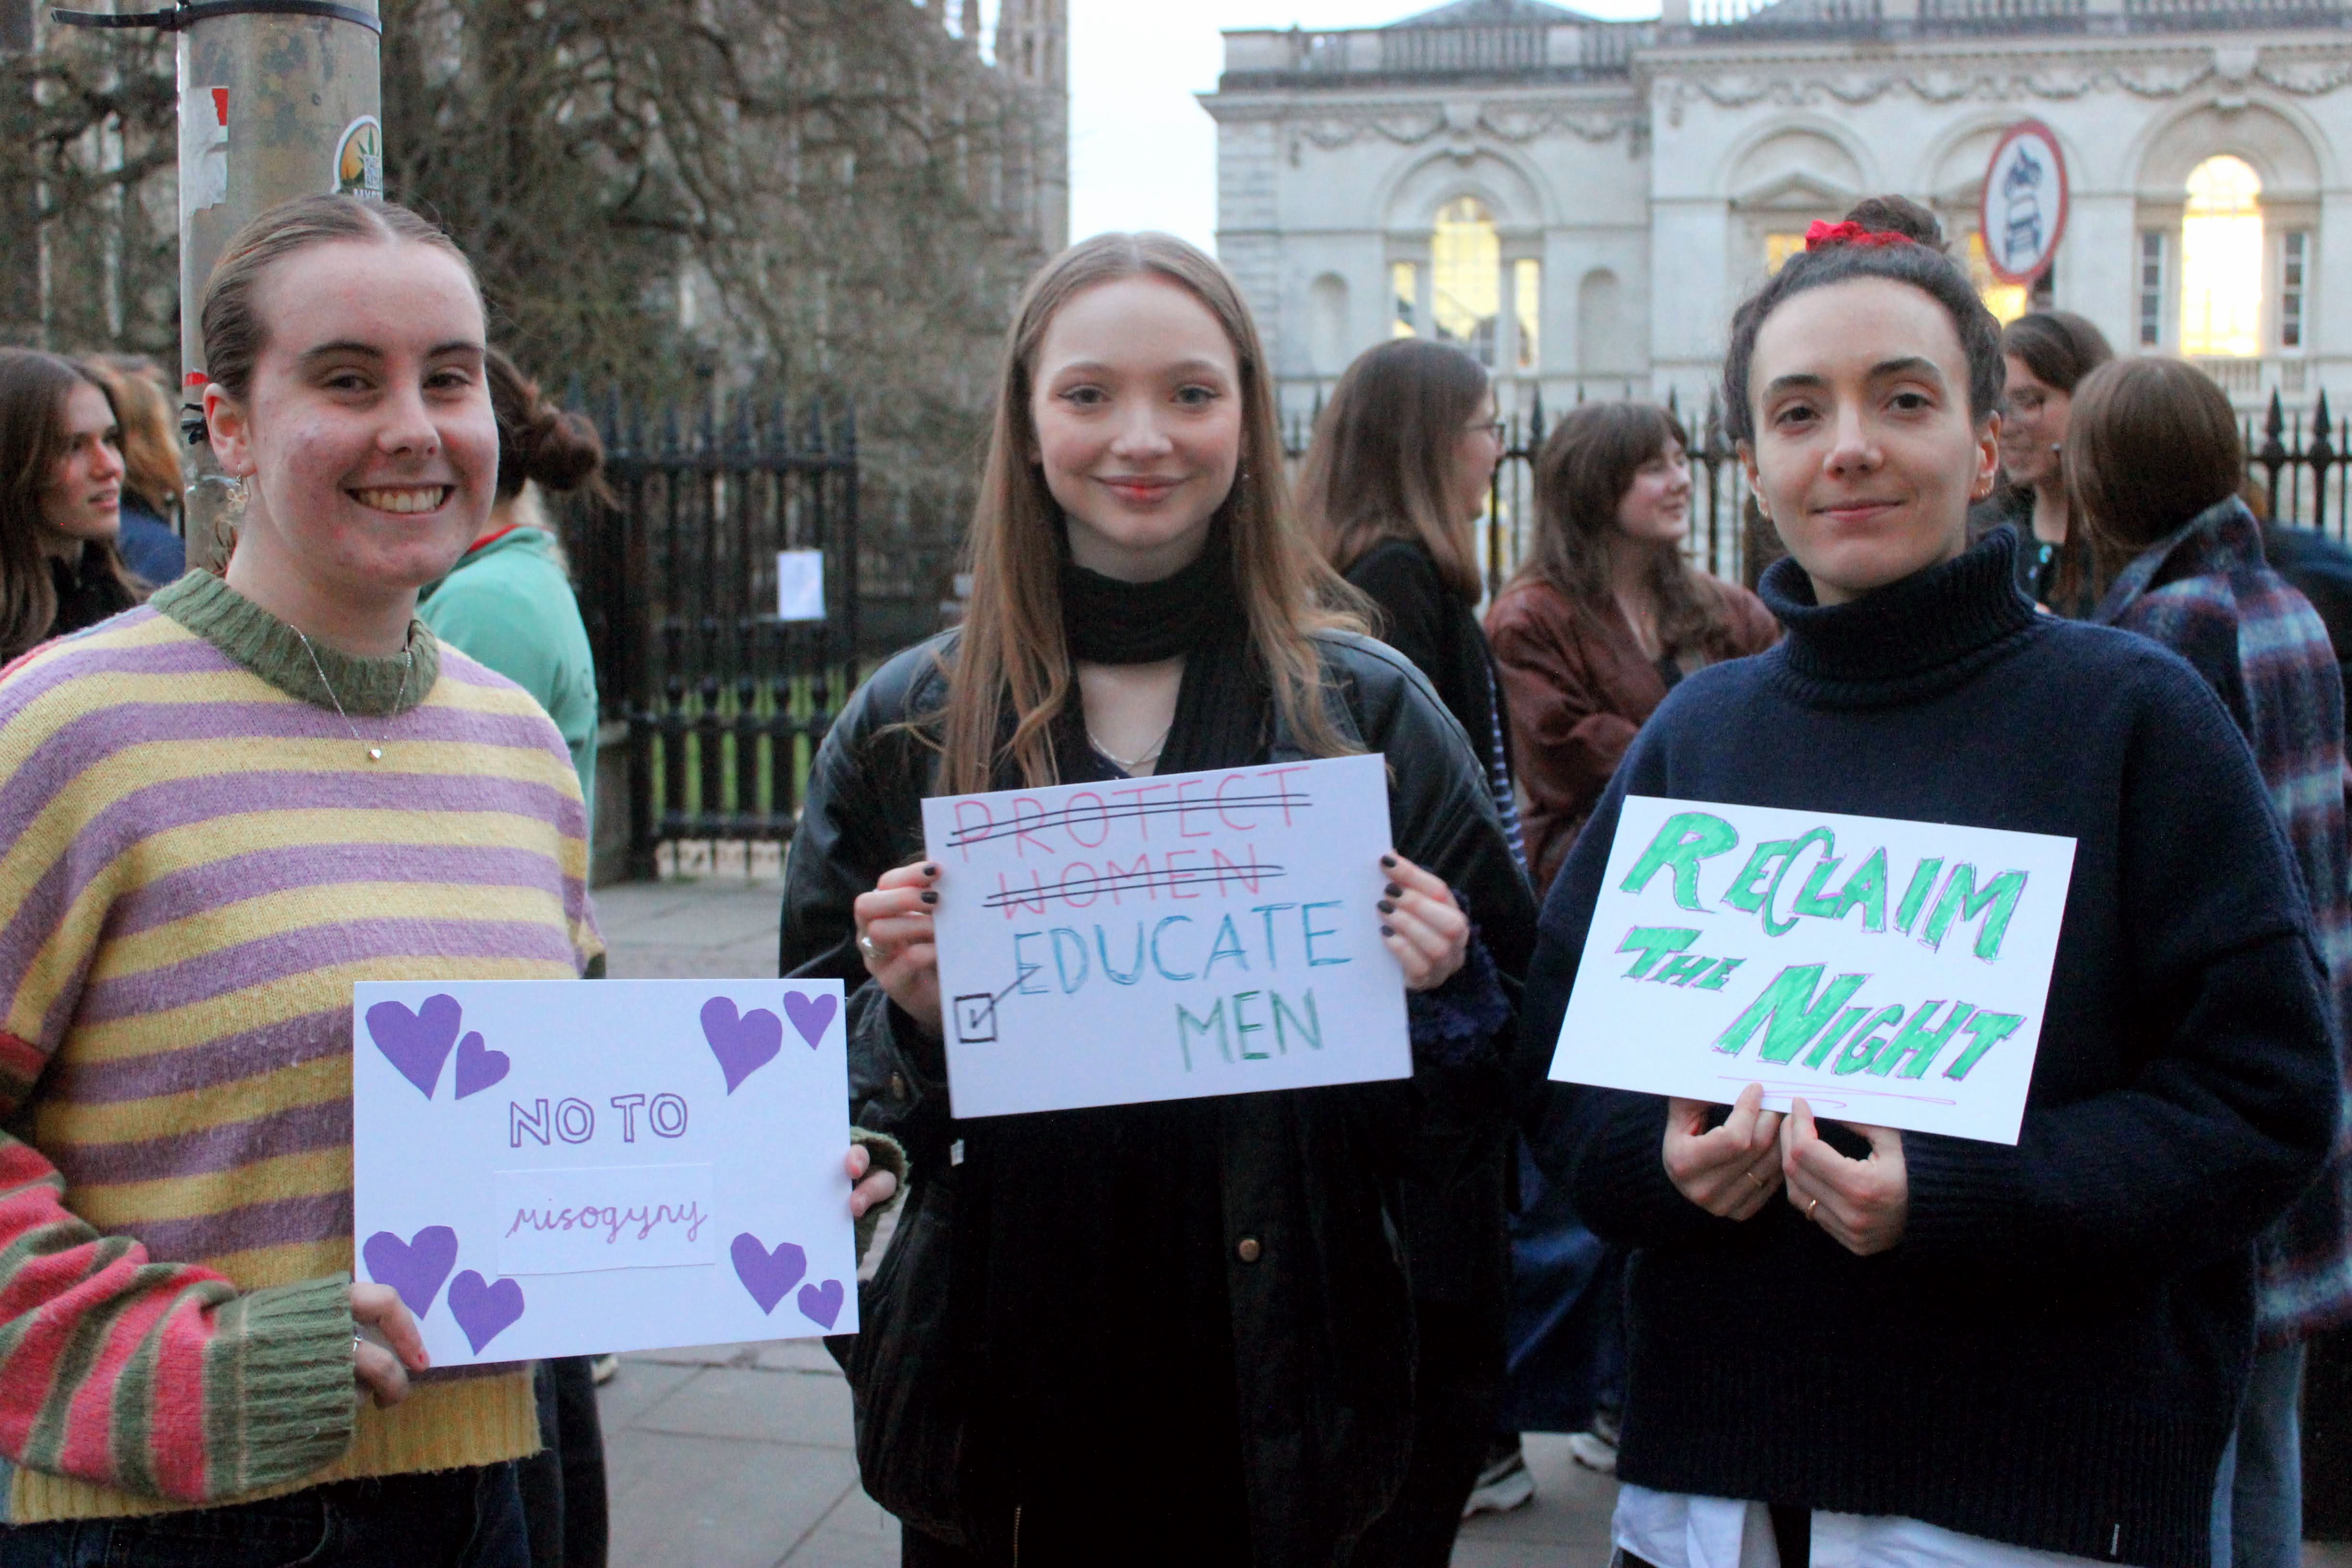 NO TO
misogyny
PROTECT
WOMEN
EDUCATE
MEN
RECLAIM
THE
NIGHT